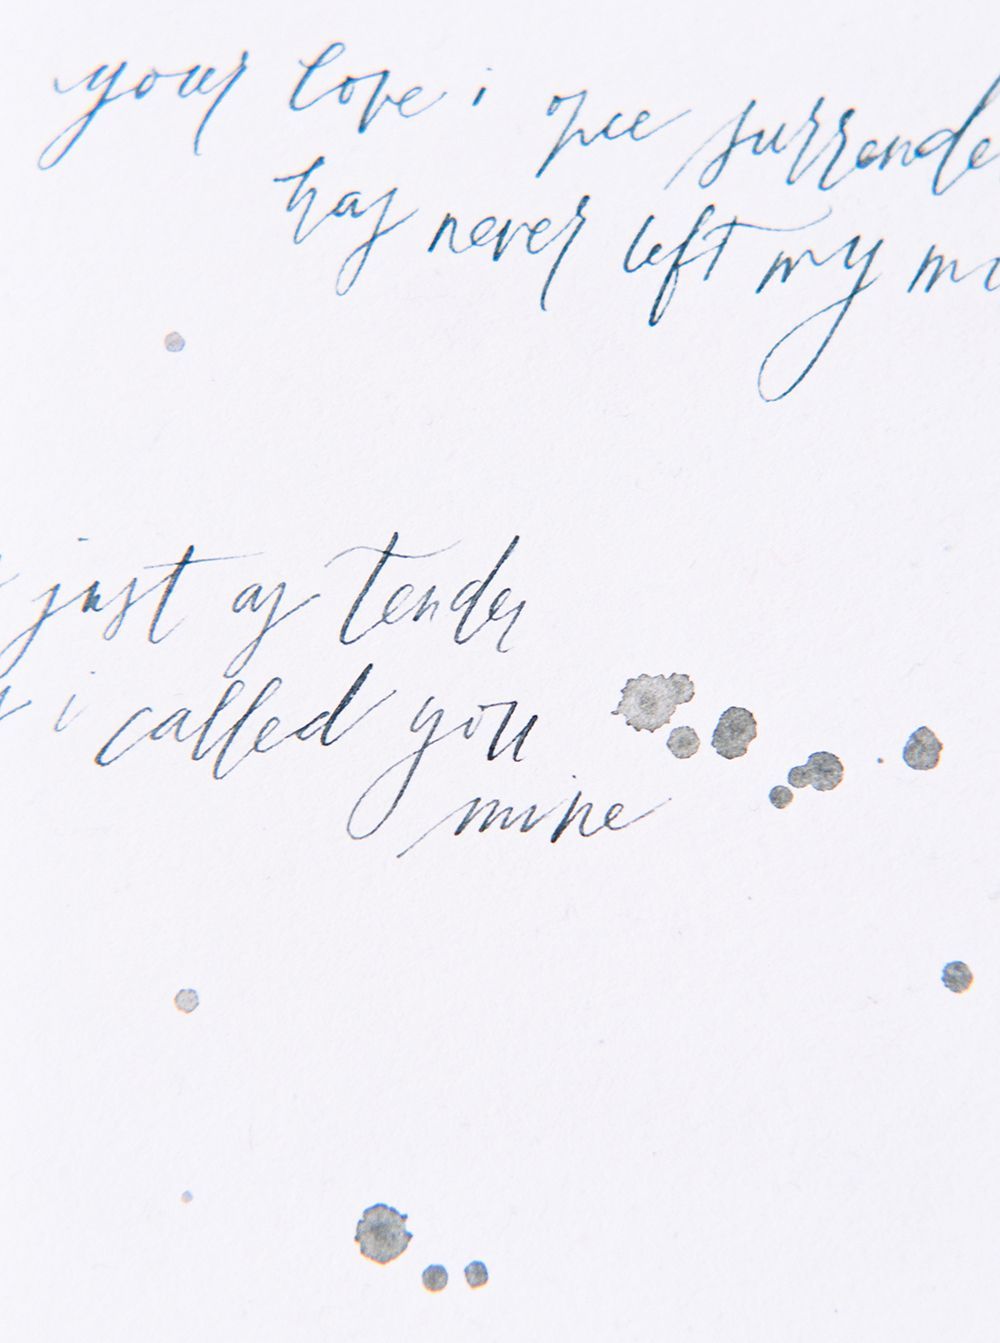 your love i once surrende
has never left my mi
just as tender
i called you
mine